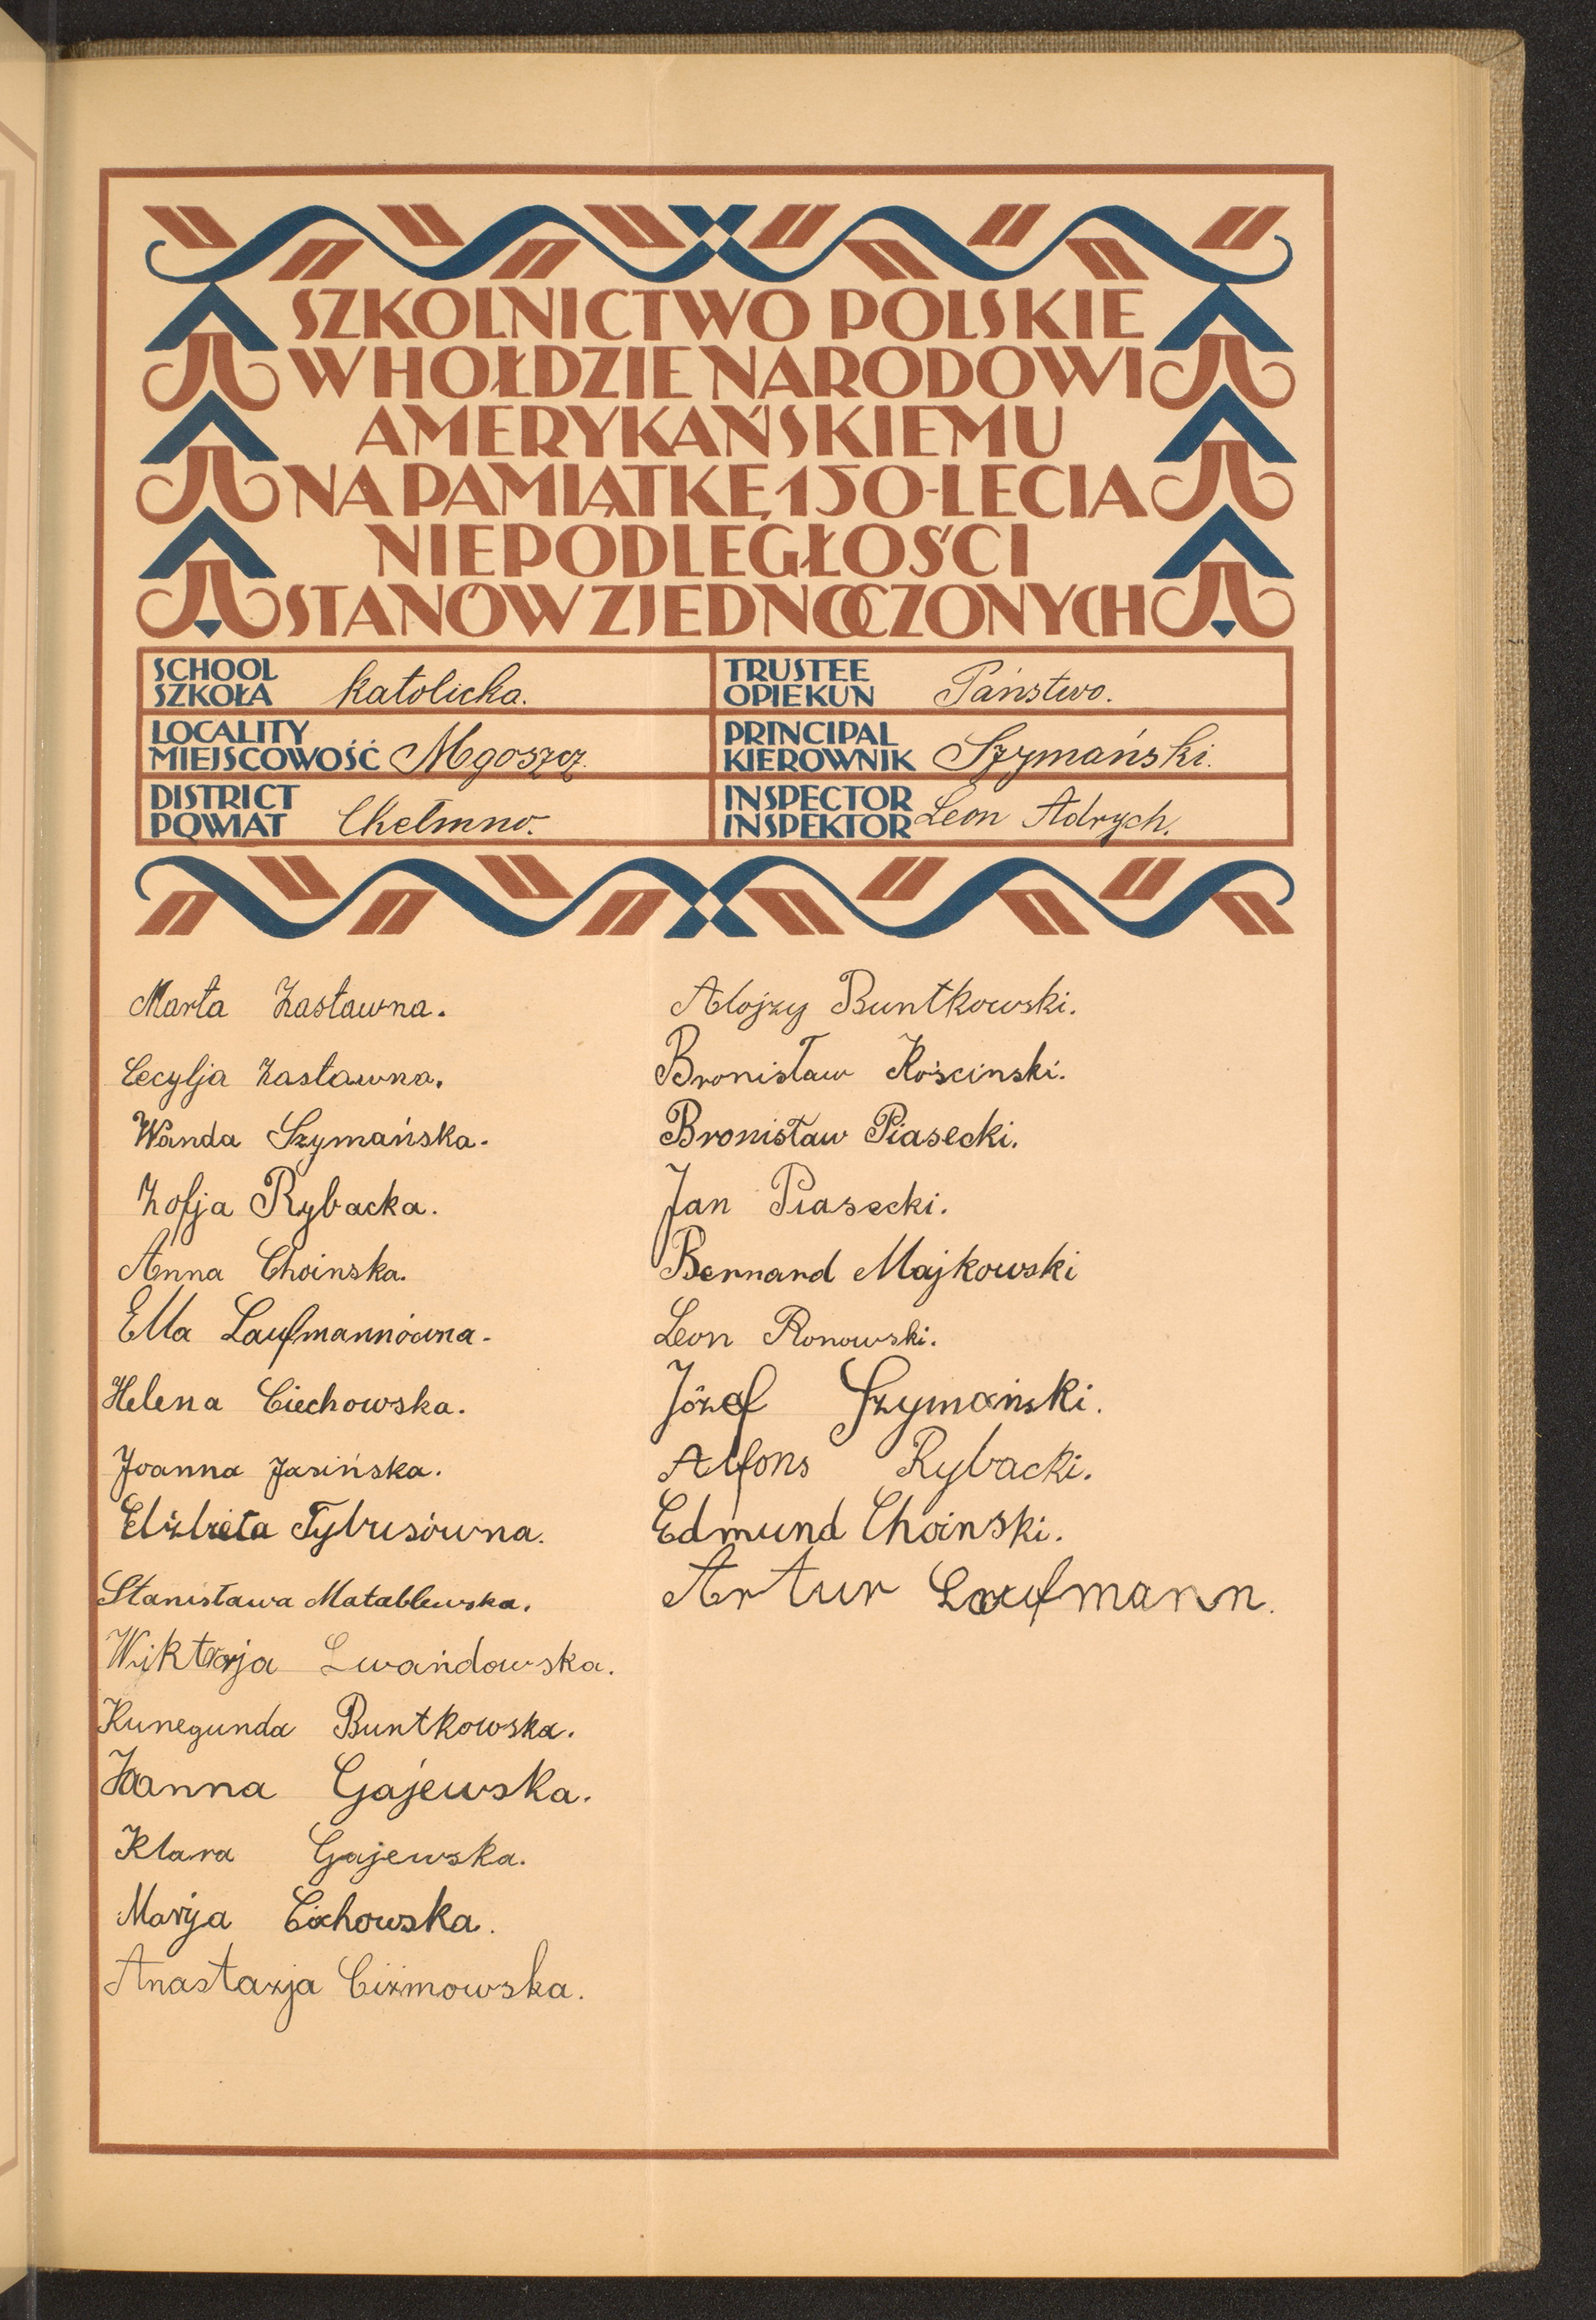 SZKOLNICTWO POLSKIE
W HOŁDZIE NARODOWI
AMERYKAŃSKIEMU
NA PAMIĄTKĘ 150-LECIA
NIEPODLEGŁOŚCI
STANÓW ZJEDNOCZONYCH
SCHOOL
SZKOŁA katolicka.
TRUSTEE
OPIEKUN Państwo.
LOCALITY
MIEJSCOWOŚĆ Mgoszcz.
PRINCIPAL
KIEROWNIK Szymański.
DISTRICT
POWIAT Chełmno.
INSPECTOR
INSPEKTOR Leon Adrych.
Marta Zastawna.
Cecylja Zastawna.
Wanda Szymańska.
Zofja Rybacka.
Anna Choinska.
Ella Laufmannówna.
Helena Ciechowska.
Joanna Jasińska.
Elżbieta Tybusówna.
Stanisława Matablewska.
Wiktorja Lwańdowska.
Kunegunda Buntkowska.
Joanna Gajewska.
Klara Gajewska.
Marja Cichowska.
Anastazja Ciżmowska.
Alojzy Buntkowski.
Bronisław Kościnski.
Bronisław Piasecki.
Jan Piasecki.
Bernard Majkowski
Leon Ronowski.
Józef Szymański.
Alfons Rybacki.
Edmund Choinski.
Artur Laufmann.